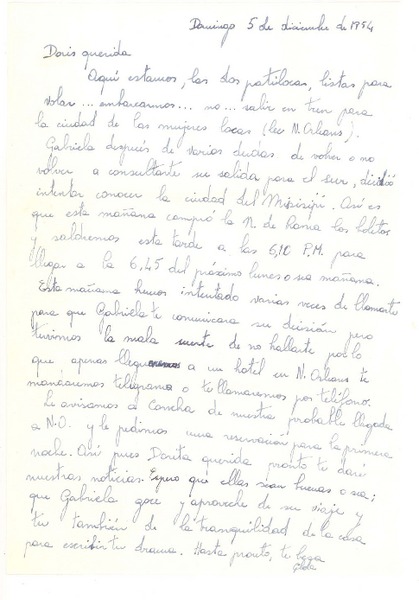 Domingo 5 de diciembre de 1954
Doris querida
Aquí estamos, las dos patilocas, listas para
volar... embarcarnos... no... salir en tren para
la ciudad de las mujeres locas (lee N. Orleans).
Gabriela después de varias dudas de volver o no
volver a consultarte su salida para el sur, decidió
intentar conocer la ciudad del Misisipí. Así es
que esta mañana compró la N. de Roma los bolitos
y saldremos esta tarde a las 6,10 P.M. para
llegar a la 6,45 del próximo lunes o sea mañana.
Esta mañana hemos intentado varias veces de llamarte
para que Gabriela te comunicara su decisión pero
tuvimos la mala suerte de no hallarte por lo
que apenas lleguemos a un hotel en N. Orleans te
mandaremos telegrama o te llamaremos por teléfono.
Le avisamos a Concha de nuestra probable llegada
a N.O. y le pedimos una reservación para la primera
noche. Así pues Dorita querida pronto te daré
nuestras noticias. Espero que ellas sean buenas o sea;
que Gabriela goce y aproveche de su viaje y
tu también de la tranquilidad de la casa
para escribir tu drama. Hasta pronto, te besa
Gilda